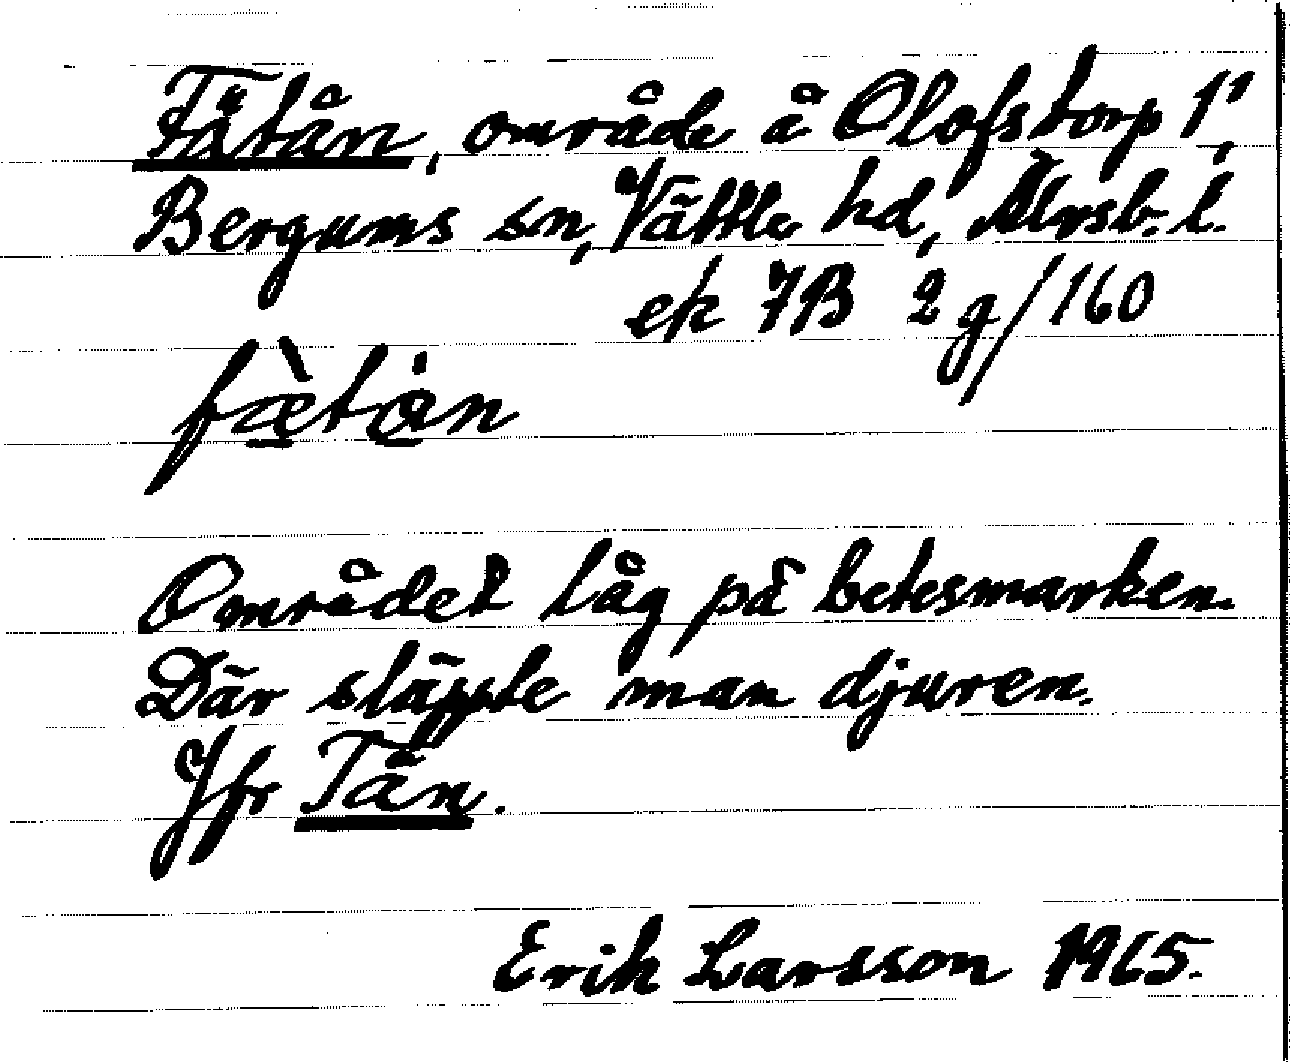 Fätån, område å Olofstorp 1¹,
Bergums sn, Vättle hd, Älvsb. l.
ek 7B 2g/160
fæ̀tån
Området låg på betesmarken.
Där släppte man djuren.
Jfr Tån.
Erik Larsson 1965.